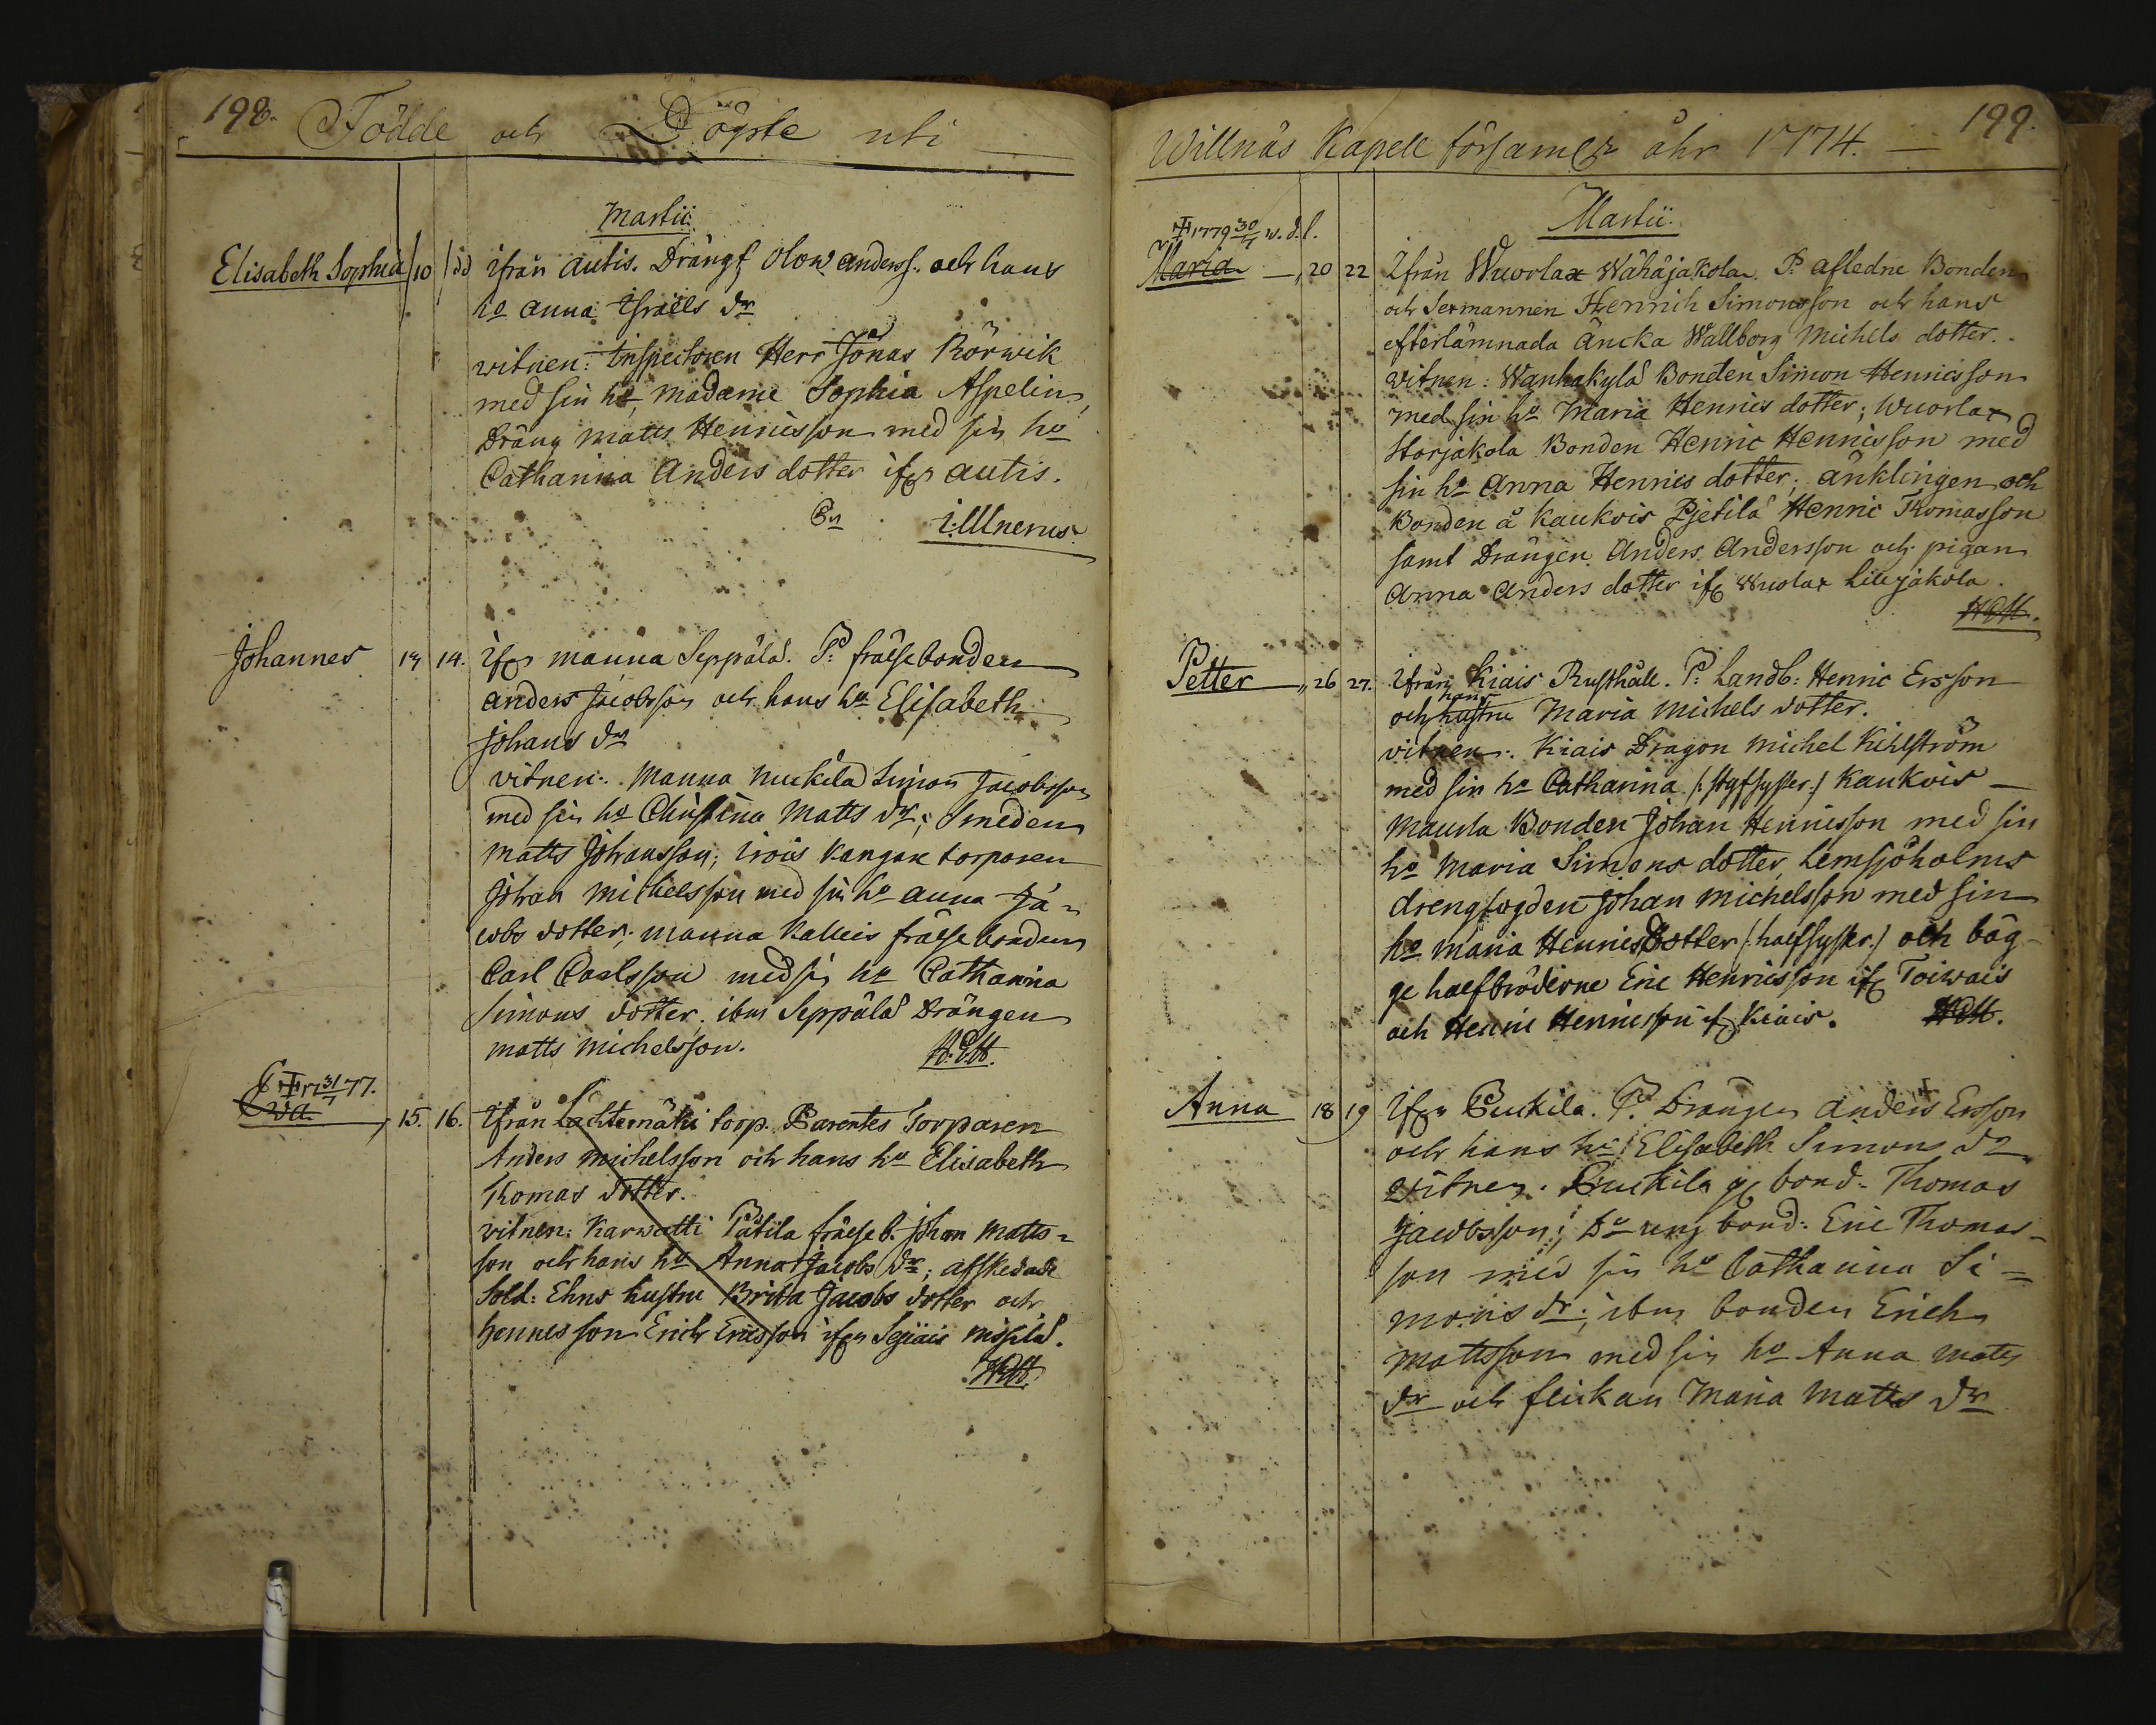 198. Födde och Döpte uti
Martii.
Elisabeth Sophia 10 dd ifrån autis. Drängf Olow anderss. och hans
ho anna Israels dr
witnen: Inspectoren Herr Jonas Rörwik
med sin ho, madame Sophia Aspelin,
Dräng matts Henricsson med sin ho
Catharina Anders dotter ifr autis.
Johannes 13 14. Ifr manna Seppälä. P: frälsebonden
anders Jacobsson och hans ho Elisabeth
Johans dr
vitnen: Manna nuckila Simon Jacobsson
med sin ho Christina Matts dr; Smeden
matts Johansson; irois Kangare torparen
Johan michelsson med sin ho anna Ja=
cobs dotter; manna Kalleis frälse bonden
Carl Carlsson med sin ho Catharina
Simons dotter. ibm Seppälä Drängen
matts michelsson.
31/7 77.
Eva 15. 16. Ifrån Lachtemäki torp. Parentes Torparen
Anders michelsson och hans ho Elisabeth
Thomas dotter.
witnen: Karwatti Pätila frälse b. Johan Matts=
son och hans ho Anna Jacobs dr; afskedade
Sold: Ehns hustru Brita Jacobs dotter och
hennes son Erich Ericsson ifrn Sejiais missilä.
Willnäs Kapell församl åhr 1774. 199.
Martii.
1779 30/7 w.d.l.
Maria 20 22 Ifrån Wuorlax Wähäjakola. P: afledne Bonden
och Sexmannen Henrich Simonsson och hans
efterlämnada äncka Wallborg Michels dotter.
vitnen: Wanhakylä Bonden Simon Henricsson
med sin ho Maria Henrics dotter; Wuorlax
Storjakola Bonden Henric Henricsson med
sin ho Anna Henrics dotter; änklingen och
Bonden å Kaukois Pjetilä Henric Thomasson
samt Drängen Anders Andersson och pigan
Anna Anders dotter ifr Wuolax Lillejakola.
Petter 26 27. Ifrån Kiais Rusthåll. P: Landb: Henric Ersson
och hans hustru Maria Michels dotter.
vitnen: Kiais Dragon Michel Kihlström
med sin ho Catharina (: styfsyster :) Kaukois
Maula Bonden Johan Henricsson med sin
ho Maria Simons dotter, Lemsjöholms
drengfogden Johan michelsson med sin
ho Maria Henrics Dotter (: halfsyster :) och båg=
ge halfbröderne Eric Henricsson ifr Toiwais
och Henric Henricsson ifr Kiais.
Anna 18 19 Ifrn Puckila. P: Drängen anders Ersson
och hans ho Elisabeth Simons dr
vitnen. Puckila gl bond. Thomas
Jacobsson; Do ung bond: Eric Thomas=
son med sin ho Catharina Si=
mons dr; ibm bonden Erich
Mattsson med sin ho Anna Matts
dr och flickan Maria Matts dr